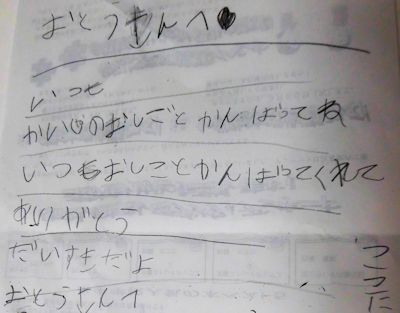 おとうさんへ♥
いつも
かいしゃのおしごと かんばってね
いつもおしことかんばってくれて
ありがとう
だいすきだよ
おとうさんへ